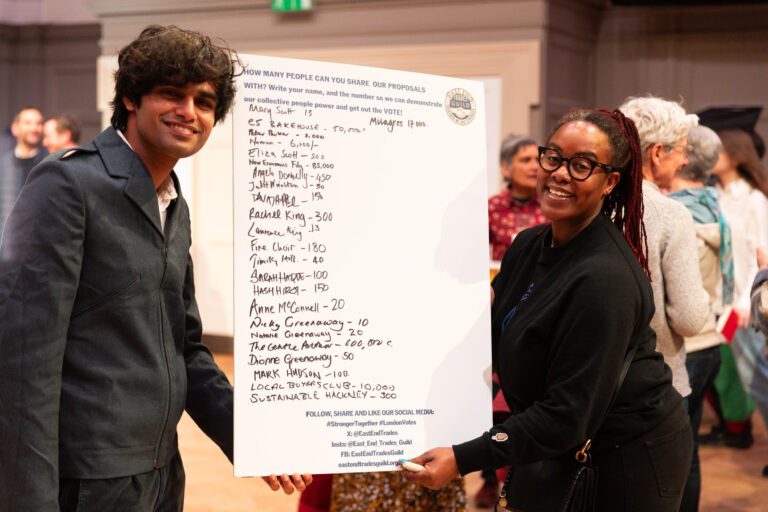 HOW MANY PEOPLE CAN YOU SHARE OUR PROPOSALS
WITH? Write your name, and the number so we can demonstrate
our collective people power and get out the VOTE!
GUILD
Mary Scott 13
Milagros 17 000
E5 BAKEHOUSE - 50,000
Peter Parker - 2,000
- 6,000
Eliza Scott - 500
New Economics Fdn - 85,000
Angela Donnelly - 450
- 50
Rachel King - 300
Laurence King 13
Fire Choir - 180
- 40
SARAH HADDE - 100
HASH HIRSI - 150
Anne McConnell - 20
Nicky Greenaway - 10
Natalie Greenaway - 20
The Gentle Author - 600,
Dionne Greenway - 50
MARK HUDSON - 100
LOCAL BUYERS CLUB - 10,000
SUSTAINABLE HACKNEY - 300
FOLLOW, SHARE AND LIKE OUR SOCIAL MEDIA:
#StrongerTogether #LondonVotes
X: @EastEndTrades
Insta: @East_End_Trades_Guild
FB: EastEndTradesGuild
eastendtradesguild.org.uk